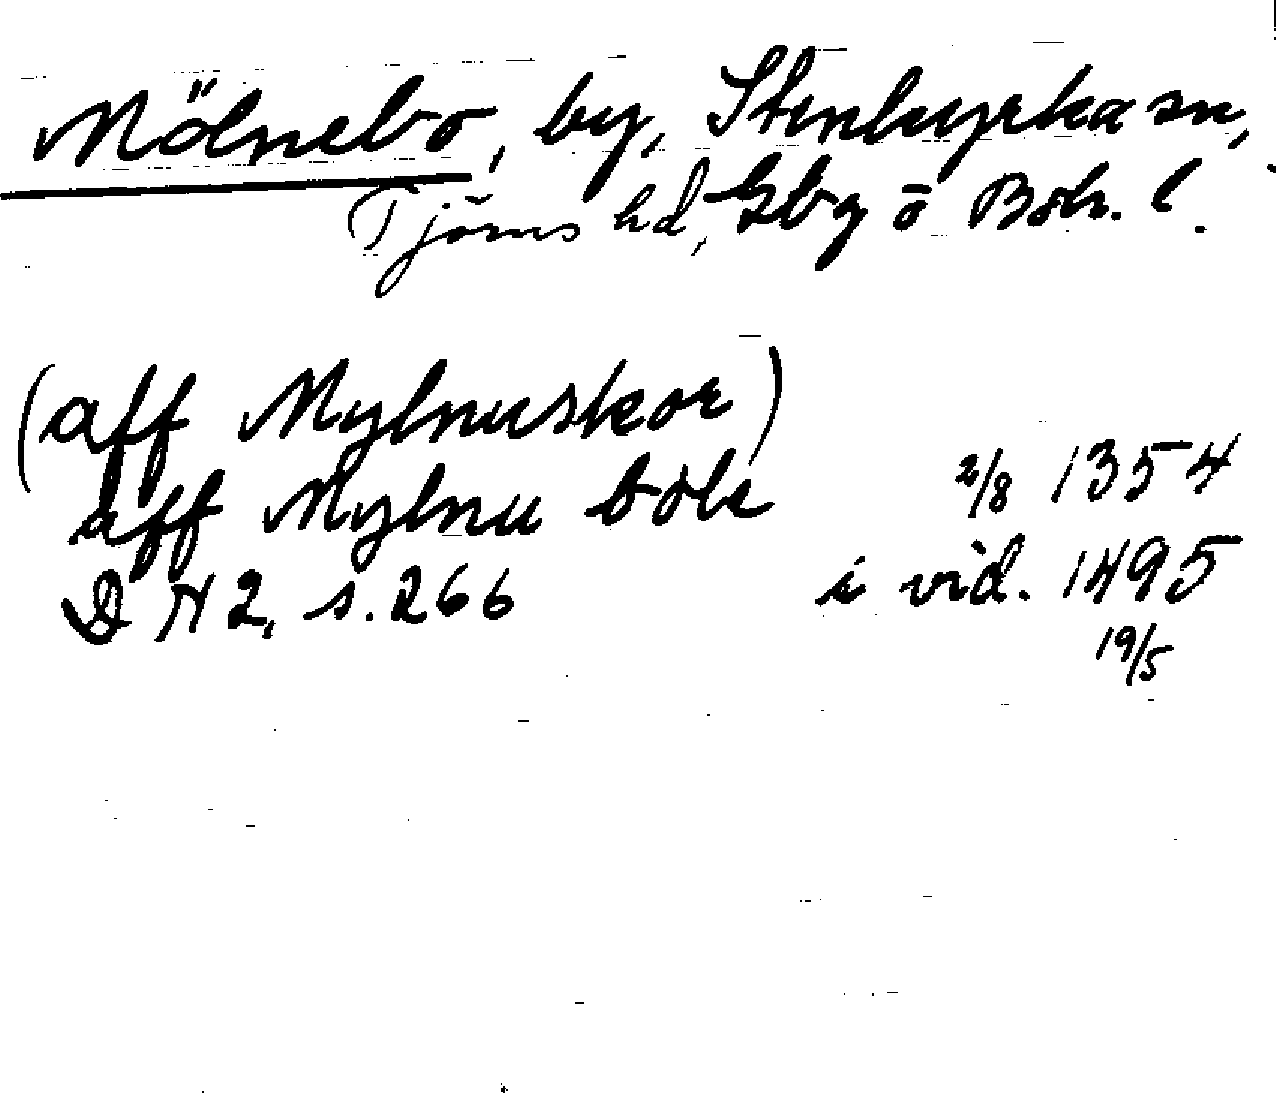 Mölnebo, by, Stenkyrka sn,
Tjörns hd, Gbg o Boh. l.
(aff Mylnuskor)
aff Mylnu bole 2/8 1354
DN 2, s. 266 i vid. 1495
19/5